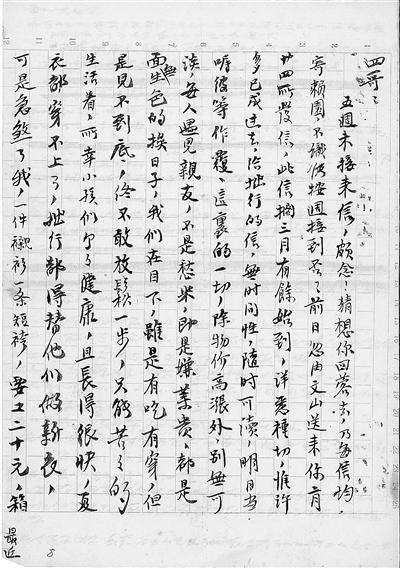 四哥：
五週未接来信，颇念！猜想你回蓉去，乃每信均
寄颐園，不識能按週接到否？前日忽由文山送来你前
廿四所發信，此信擱三月有餘始到，詳悉種切，惟許
多已成过去，给拙行的信，無时间性，隨時可读，明日当
嘱彼等作覆、這裏的一切，除物价高漲外，别無可
谈，每人遇見親友，不是愁米，即是嫌菜贵，都是
面無生色的挨日子，我们在目下，雖是有吃有穿，但
是見不到底，终不敢放鬆一步，只能苦苦的
生活着，所幸小孩们个个健康，且長得很快，夏
衣都穿不上了，拙行都得替他们做新衣，
可是急煞了我，一件襯衫一条短袴，要工二十元，箱
最近
8